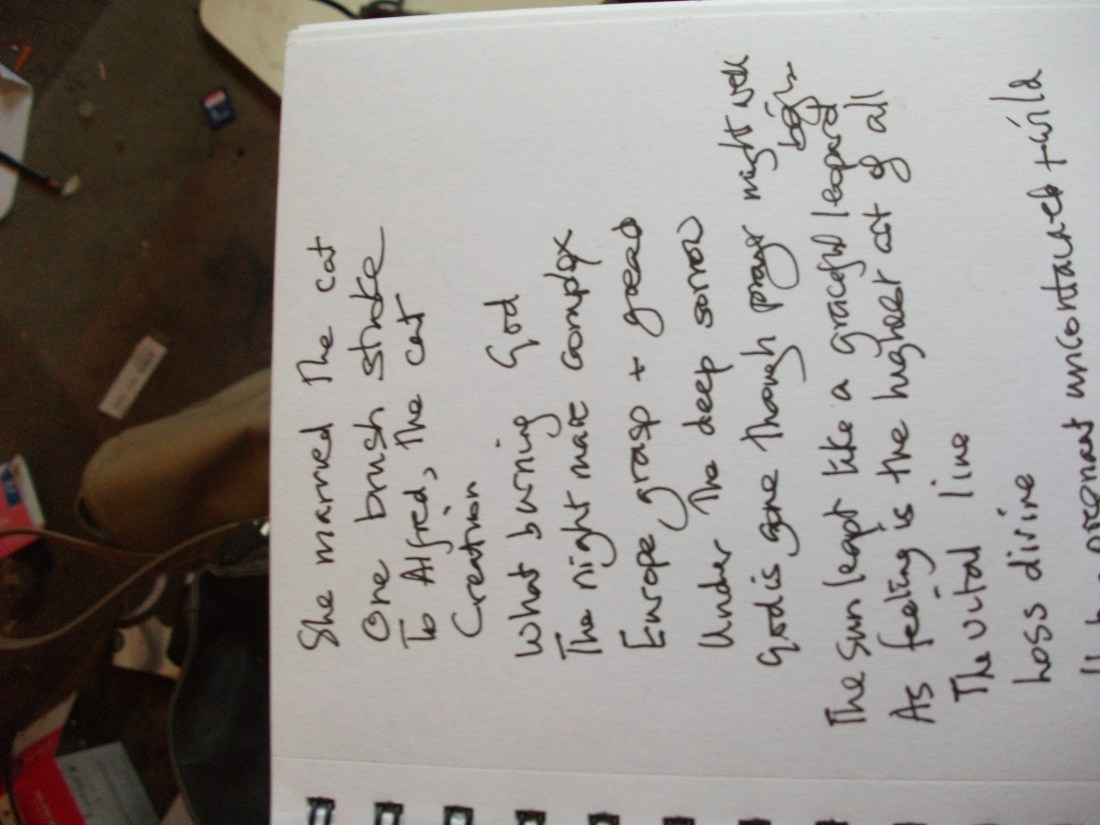 She married The cat
One brush stroke
To Alfred, The cat
Creation
What burning God
The night mare complex
Europe, grasp + greed
Under The deep sorrow
God is gone Though prayer might well
begin
The sun leapt like a graceful leopard
As feeling is the highest art of all
The vital line
Loss divine
uncontained + wild